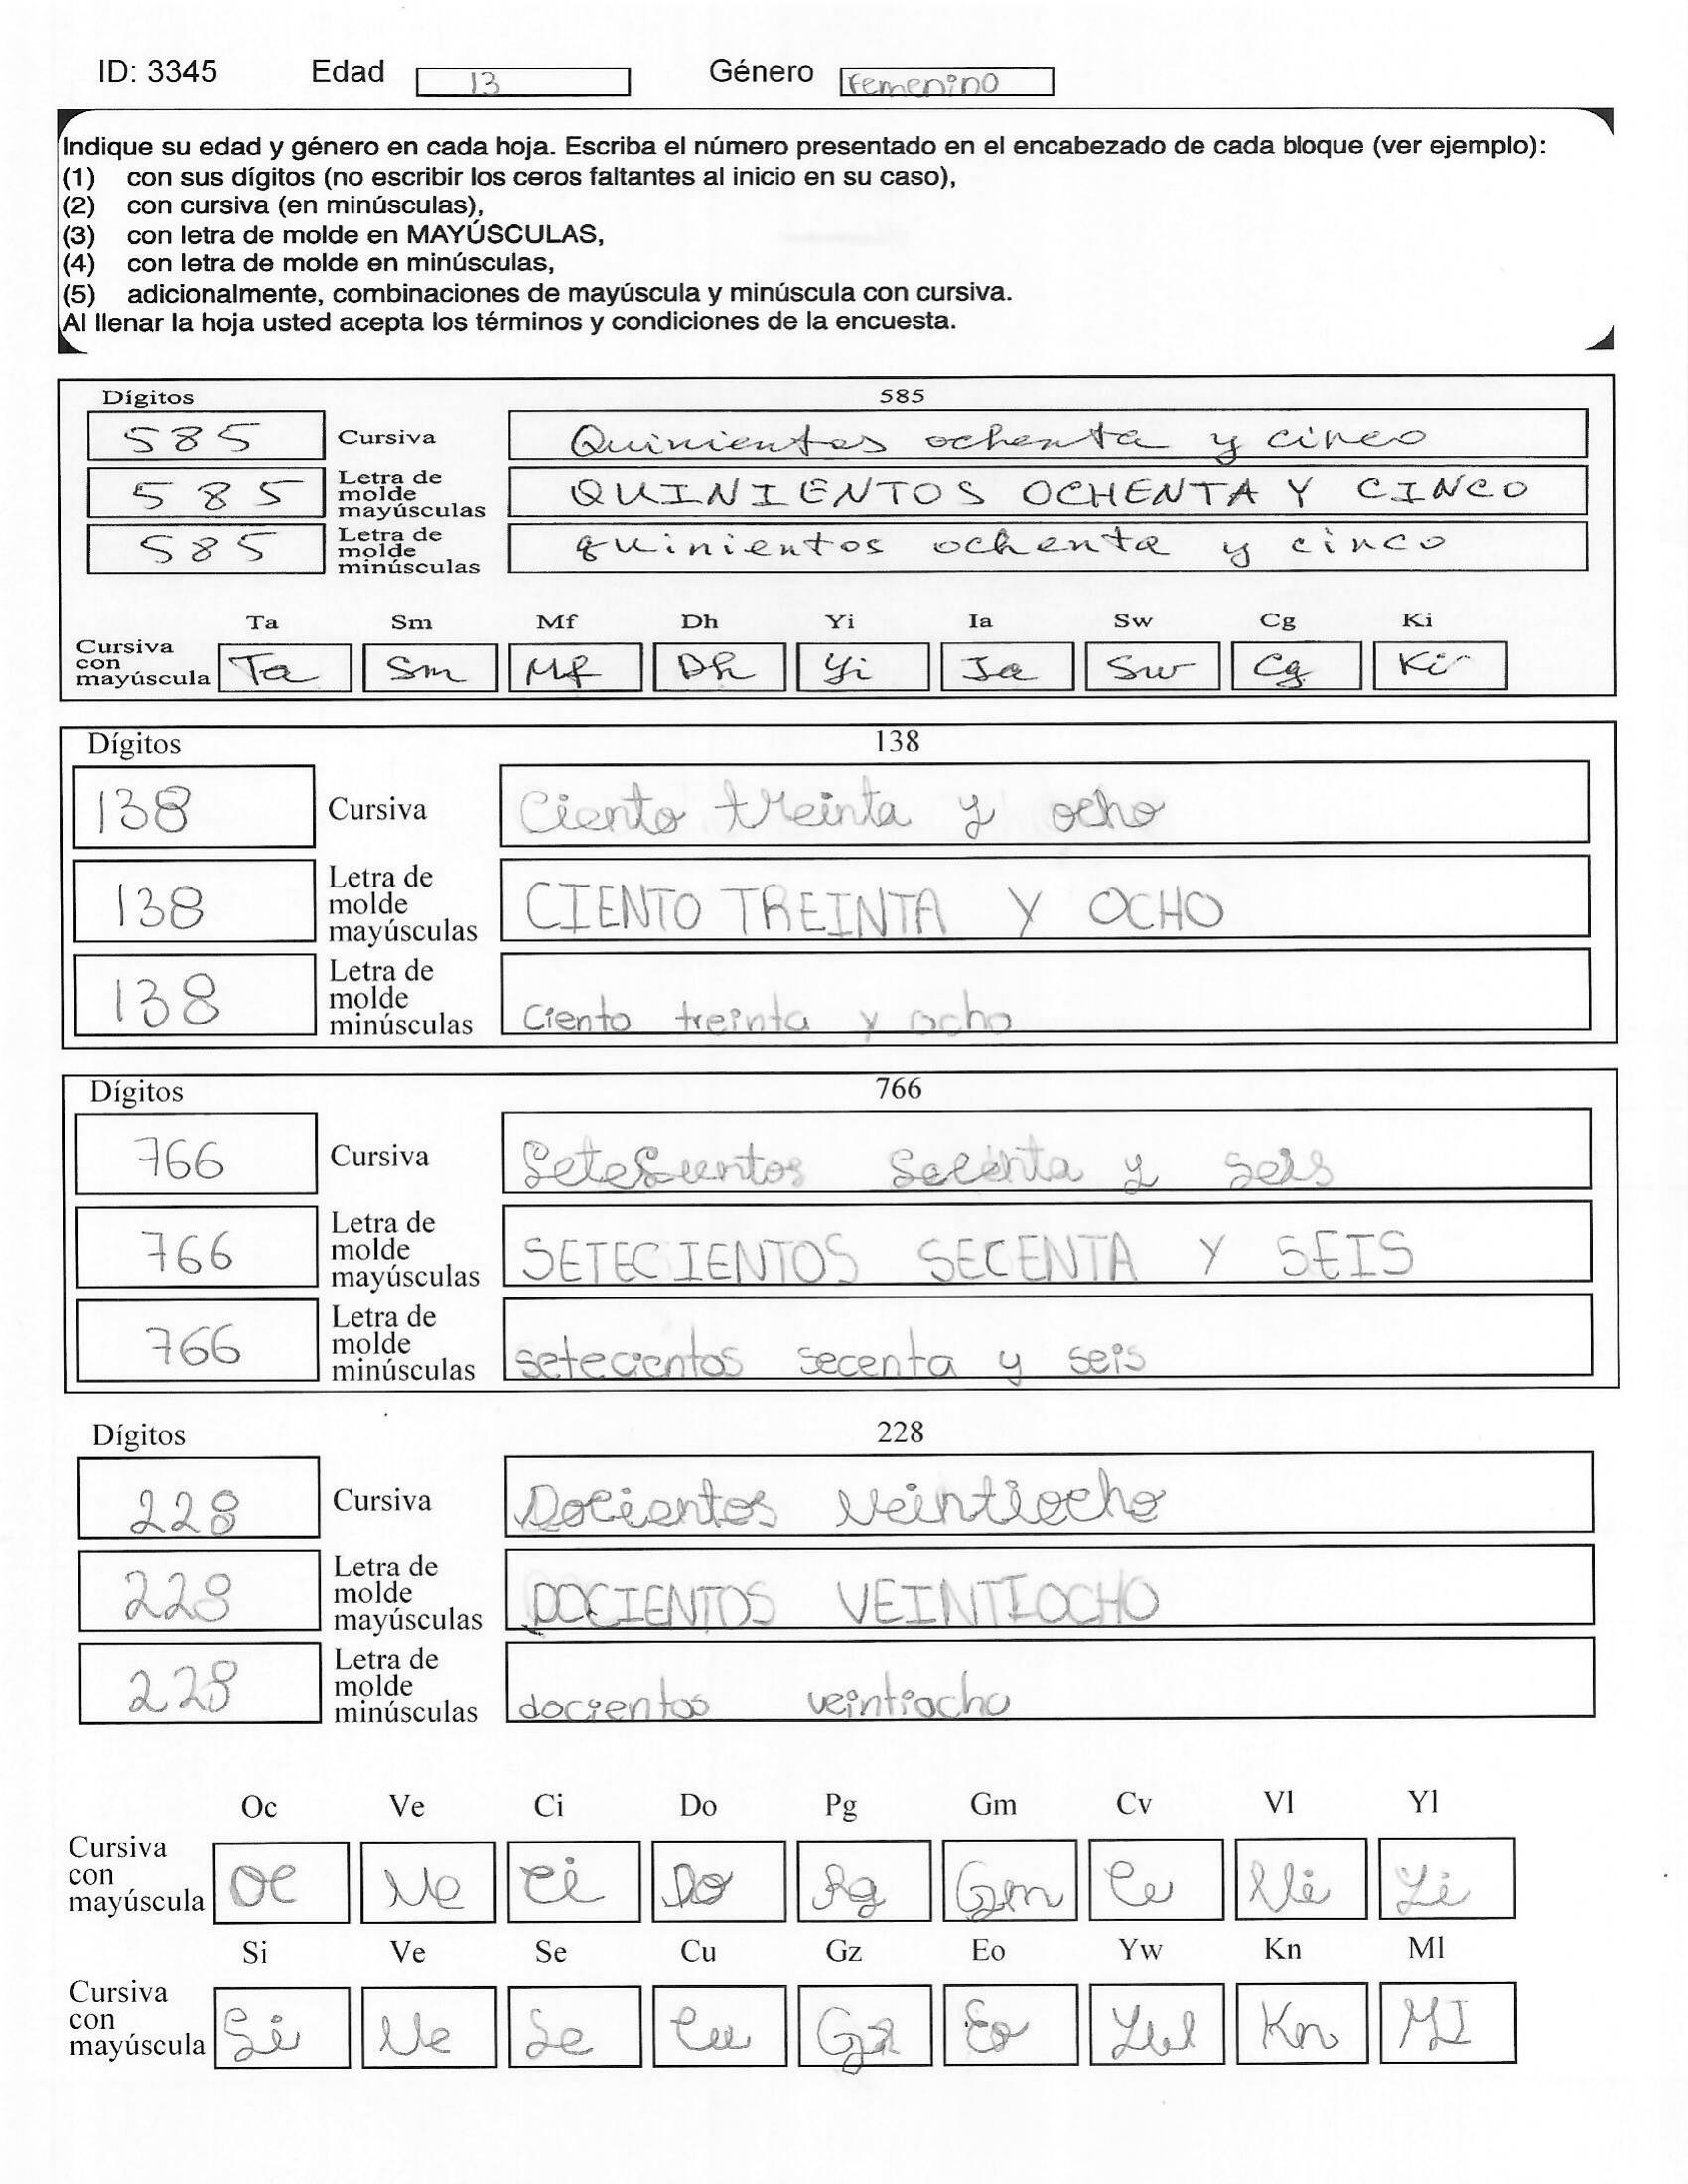 ID: 3345 Edad 13 Género femenino
Indique su edad y género en cada hoja. Escriba el número presentado en el encabezado de cada bloque (ver ejemplo):
(1) con sus dígitos (no escribir los ceros faltantes al inicio en su caso),
(2) con cursiva (en minúsculas),
(3) con letra de molde en MAYÚSCULAS,
(4) con letra de molde en minúsculas,
(5) adicionalmente, combinaciones de mayúscula y minúscula con cursiva.
Al llenar la hoja usted acepta los términos y condiciones de la encuesta.
Dígitos 585
585 Cursiva Quinientos ochenta y cinco
585 Letra de molde mayúsculas QUINIENTOS OCHENTA Y CINCO
585 Letra de molde minúsculas quinientos ochenta y cinco
Ta Sm Mf Dh Yi Ia Sw Cg Ki
Cursiva con mayúscula Ta Sm Mf Dh Yi Ia Sw Cg Ki
Dígitos 138
138 Cursiva Ciento treinta y ocho
138 Letra de molde mayúsculas CIENTO TREINTA Y OCHO
138 Letra de molde minúsculas ciento treinta y ocho
Dígitos 766
766 Cursiva y seis
766 Letra de molde mayúsculas SETECIENTOS SECENTA Y SEIS
766 Letra de molde minúsculas setecientos secenta y seis
Dígitos 228
228 Cursiva Docientos veintiocho
228 Letra de molde mayúsculas DOCIENTOS VEINTIOCHO
228 Letra de molde minúsculas docientos veintiocho
Oc Ve Ci Do Pg Gm Cv Vl Yl
Cursiva con mayúscula Oc Ve Ci Do Pg Gm Cv Vi Yi
Si Ve Se Cu Gz Eo Yw Kn Ml
Cursiva con mayúscula Si Ve Se Cu Gz Eo Yw Kn MI